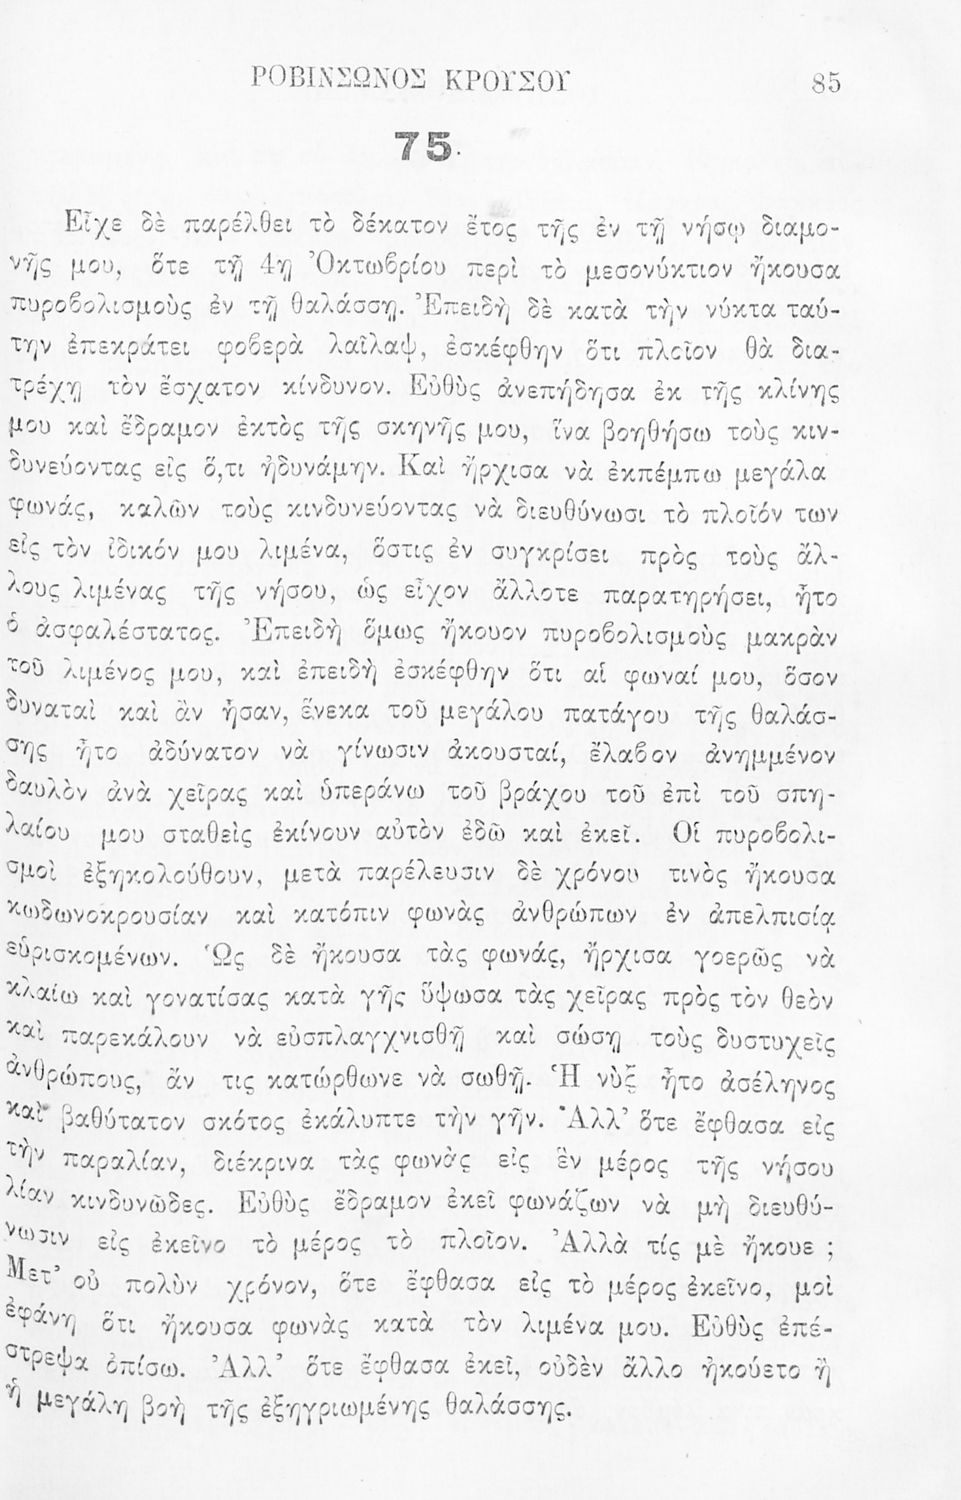 ΡΟΒΙΝΣΩΝΟΣ ΚΡΟΥΣΟΥ 85
75.
Εἶχε δὲ παρέλθει τὸ δέκατον ἔτος τῆς ἐν τῇ νήσῳ διαμο-
νῆς μου, ὅτε τῇ 4ῃ Ὀκτωβρίου περὶ τὸ μεσονύκτιον ἤκουσα
πυροβολισμοὺς ἐν τῇ θαλάσσῃ. Ἐπειδὴ δὲ κατὰ τὴν νύκτα ταύ-
την ἐπεκράτει φοβερὰ λαῖλαψ, ἐσκέφθην ὅτι πλοῖον θὰ δια-
τρέχῃ τὸν ἔσχατον κίνδυνον. Εὐθὺς ἀνεπήδησα ἐκ τῆς κλίνης
μου καὶ ἔδραμον ἐκτὸς τῆς σκηνῆς μου, ἵνα βοηθήσω τοὺς κιν-
δυνεύοντας εἰς ὅ,τι ἠδυνάμην. Καὶ ἤρχισα νὰ ἐκπέμπω μεγάλα
φωνάς, καλῶν τοὺς κινδυνεύοντας νὰ διευθύνωσι τὸ πλοῖόν των
εἰς τὸν ἰδικόν μου λιμένα, ὅστις ἐν συγκρίσει πρὸς τοὺς ἄλ-
λους λιμένας τῆς νήσου, ὡς εἶχον ἄλλοτε παρατηρήσει, ἦτο
ὁ ἀσφαλέστατος. Ἐπειδὴ ὅμως ἤκουον πυροβολισμοὺς μακρὰν
τοῦ λιμένος μου, καὶ ἐπειδὴ ἐσκέφθην ὅτι αἱ φωναί μου, ὅσον
δυναταὶ καὶ ἂν ἦσαν, ἕνεκα τοῦ μεγάλου πατάγου τῆς θαλάσ-
σης ἦτο ἀδύνατον νὰ γίνωσιν ἀκουσταί, ἔλαβον ἀνημμένον
δαυλὸν ἀνὰ χεῖρας καὶ ὑπεράνω τοῦ βράχου τοῦ ἐπὶ τοῦ σπη-
λαίου μου σταθεὶς ἐκίνουν αὐτὸν ἐδῶ καὶ ἐκεῖ. Οἱ πυροβολι-
σμοὶ ἐξηκολούθουν, μετὰ παρέλευσιν δὲ χρόνου τινὸς ἤκουσα
κωδωνοκρουσίαν καὶ κατόπιν φωνὰς ἀνθρώπων ἐν ἀπελπισίᾳ
εὑρισκομένων. Ὡς δὲ ἤκουσα τὰς φωνάς, ἤρχισα γοερῶς νὰ
κλαίω καὶ γονατίσας κατὰ γῆς ὕψωσα τὰς χεῖρας πρὸς τὸν θεὸν
καὶ παρεκάλουν νὰ εὐσπλαγχνισθῇ καὶ σώσῃ τοὺς δυστυχεῖς
ἀνθρώπους, ἄν τις κατώρθωνε νὰ σωθῇ. Ἡ νὺξ ἦτο ἀσέληνος
καὶ βαθύτατον σκότος ἐκάλυπτε τὴν γῆν. Ἀλλ' ὅτε ἔφθασα εἰς
τὴν παραλίαν, διέκρινα τὰς φωνὰς εἰς ἓν μέρος τῆς νήσου
λίαν κινδυνῶδες. Εὐθὺς ἔδραμον ἐκεῖ φωνάζων νὰ μὴ διευθύ-
νωσιν εἰς ἐκεῖνο τὸ μέρος τὸ πλοῖον. Ἀλλὰ τίς μὲ ἤκουε ;
Μετ' οὐ πολὺν χρόνον, ὅτε ἔφθασα εἰς τὸ μέρος ἐκεῖνο, μοὶ
ἐφάνη ὅτι ἤκουσα φωνὰς κατὰ τὸν λιμένα μου. Εὐθὺς ἐπέ-
στρεψα ὀπίσω. Ἀλλ' ὅτε ἔφθασα ἐκεῖ, οὐδὲν ἄλλο ἠκούετο ἢ
ἡ μεγάλη βοὴ τῆς ἐξηγριωμένης θαλάσσης.